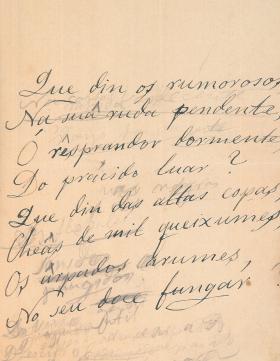 Que din os rumorosos
Na suâ ruda pendente,
Ó rêsprandor dormente
Do prácido luar?
Que din das altas copas,
Cheâs de mil queixumes,
Os ârpados arumes,
No seu doce fungar?